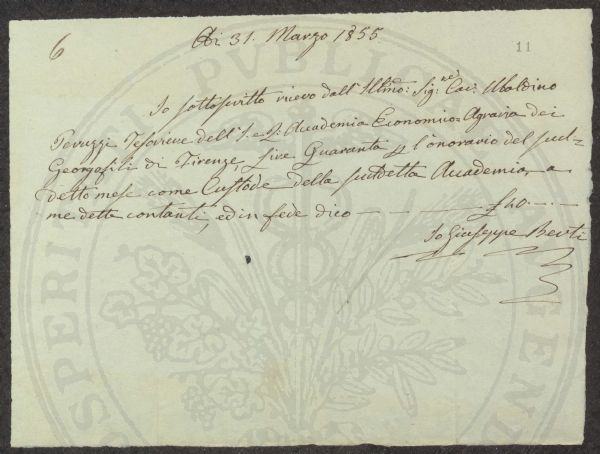 6
Adi 31. Marzo 1855.
11
Io sottoscritto ricevo dall' Illmo: Sig:re Cav: Ubaldino
Peruzzi Tesoriere dell' I. e R. Accademia Economico=Agraria dei
Georgofili di Firenze, Lire Quaranta p l'onorario del sud=
detto mese come Custode della suddetta Accademia, a
me dette contanti, ed in fede dico — — — £ 40. — . —
Io Giuseppe Berti
PROSPERITATI PUBLICAE AUGENDAE